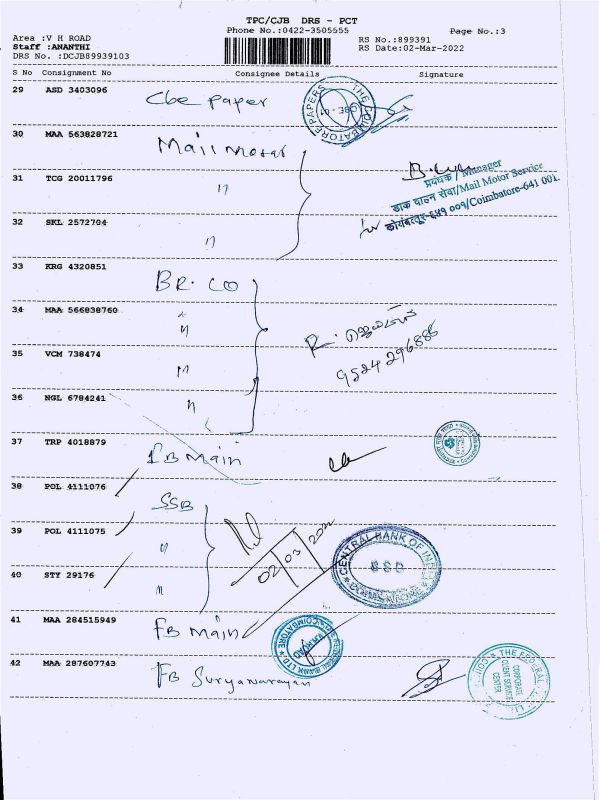 TPC/CJB DRS - PCT
Phone No.:0422-3505555
Page No.:3
Area :V H ROAD
RS No.:899391
Staff :ANANTHI
RS Date:02-Mar-2022
DRS No. :DCJB89939103
S No Consignment No Consignee Details Signature
29 ASD 3403096 Cbe Paper
THE COIMBATORE PAPERS
30 MAA 563828721 Mail Motor
31 TCG 20011796 "
प्रबंधक / Manager
डाक वाहन सेवा/Mail Motor Service
कोयंबत्तूर-६४१ ००१/Coimbatore-641 001.
32 SKL 2572704 "
33 KRG 4320851 BR. CO
34 MAA 566838760 "
R.
9524296886
35 VCM 738474 "
36 NGL 6784241 "
37 TRP 4018879 IB Main
38 POL 4111076 SSB
39 POL 4111075 "
02/03/2022
CENTRAL BANK OF INDIA
40 STY 29176 "
41 MAA 284515949 FB Main
42 MAA 287607743 FB Suryanarayan
THE FEDERAL
CORPORATE
CLIENT SERVICE
CENTER